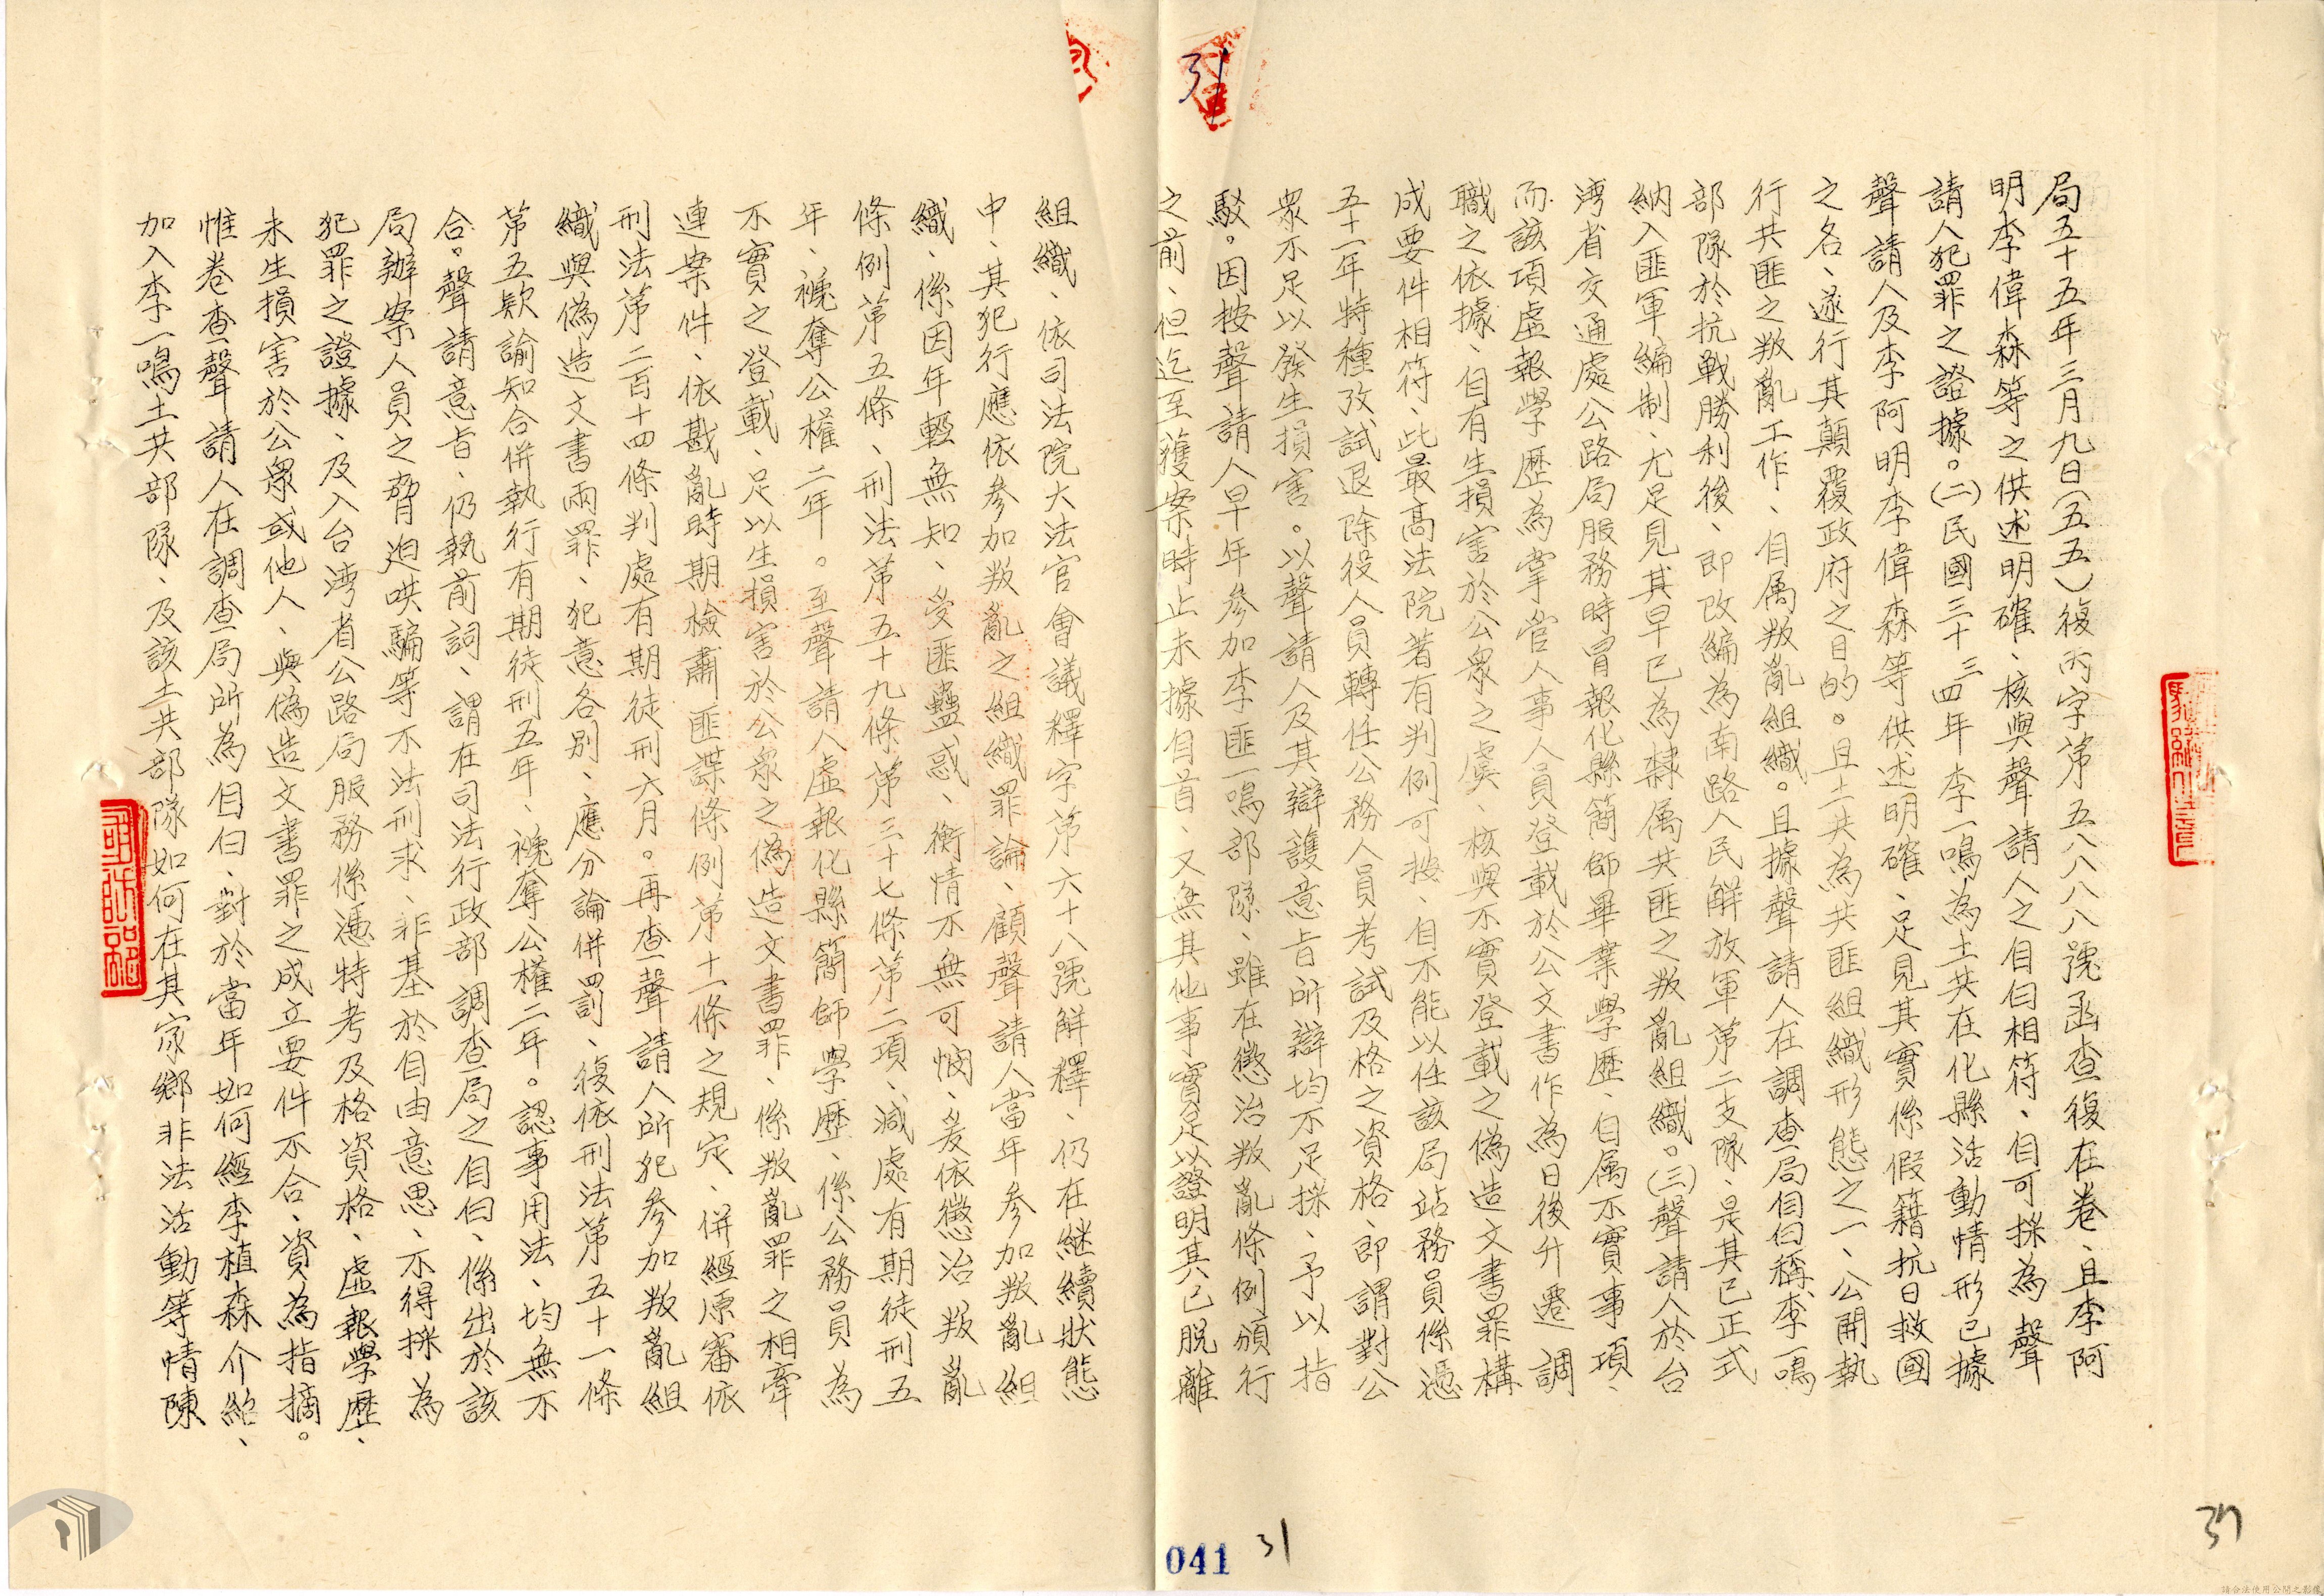 局五十五年三月九日(五五)復丙字第五八八八八號函查復在卷、且李阿
明李偉森等之供述明確、核與聲請人之自白相符、自可採為聲
請人犯罪之證據。(二)民國三十三四年李一鳴為土共在化縣活動情形已據
聲請人及李阿明李偉森等供述明確、足見其實係假籍抗日救國
之名、遂行其顛覆政府之目的。且土共為共匪組織形態之一、公開執
行共匪之叛亂工作、自屬叛亂組織。且據聲請人在調查局自白稱李一鳴
部隊於抗戰勝利後、即改編為南路人民解放軍第二支隊、是其已正式
納入匪軍編制、尤足見其早已為隸屬共匪之叛亂組織。(三)聲請人於台
湾省交通處公路局服務時冒報化縣簡師畢業學歷、自屬不實事項、
而該項虛報學歷為掌管人事人員登載於公文書作為日後升遷調
職之依據、自有生損害於公眾之虞、核與不實登載之偽造文書罪構
成要件相符、此最高法院著有判例可按、自不能以任該局站務員係憑
五十一年特種攷試退除役人員轉任公務人員考試及格之資格、即謂對公
眾不足以發生損害。以聲請人及其辯護意旨所辯均不足採、予以指
駁。因按聲請人早年參加李匪一鳴部隊、雖在懲治叛亂條例頒行
之前、但迄至獲案時止未據自首、又無其他事實足以證明其已脫離
組織、依司法院大法官會議釋字第六十八號解釋、仍在繼續狀態
中、其犯行應依參加叛亂之組織罪論、顧聲請人當年參加叛亂組
織、係因年輕無知、受匪蠱惑、衡情不無可憫、爰依懲治叛亂
條例第五條、刑法第五十九條第三十七條第二項、減處有期徒刑五
年、褫奪公權二年。至聲請人虛報化縣簡師學歷、係公務員為
不實之登載、足以生損害於公眾之偽造文書罪、係叛亂罪之相牽
連案件、依戡亂時期檢肅匪諜條例第十一條之規定、併經原審依
刑法第二百十四條判處有期徒刑六月。再查聲請人所犯參加叛亂組
織與偽造文書兩罪、犯意各別、應分論併罰、復依刑法第五十一條
第五款諭知合併執行有期徒刑五年、褫奪公權二年。認事用法、均無不
合。聲請意旨、仍執前詞、謂在司法行政部調查局之自白、係出於該
局辦案人員之脅迫哄騙等不法刑求、非基於自由意思、不得採為
犯罪之證據、及入台湾省公路局服務係憑特考及格資格、虛報學歷、
未生損害於公眾或他人、與偽造文書罪之成立要件不合、資為指摘。
惟卷查聲請人在調查局所為自白、對於當年如何經李植森介紹、
加入李一鳴土共部隊、及該土共部隊如何在其家鄉非法活動等情陳
31
041
31
37